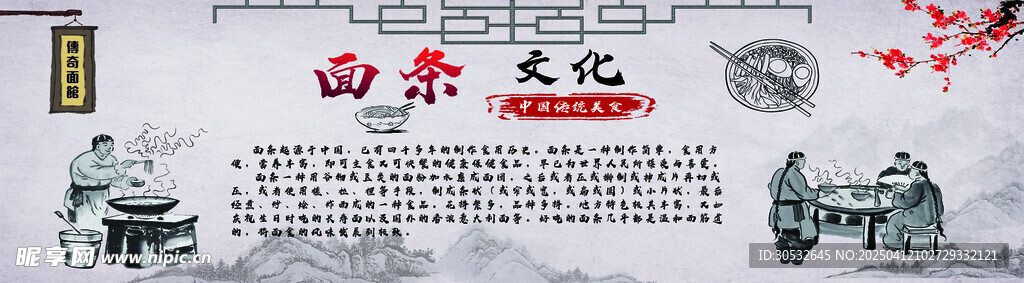 傳奇面館
面条 文化
中国传统美食
面条起源于中国，已有四千多年的制作食用历史。面条是一种制作简单，食用方
便，营养丰富，即可主食又可快餐的健康保健食品，早已为世界人民所接受与喜爱。
面条一种用谷物或豆类的面粉加水磨成面团，之后或者压或擀制或抻成片再切或
压，或者使用搓、拉、捏等手段，制成条状（或窄或宽，或扁或圆）或小片状，最后
经煮、炒、烩、炸而成的一种食品。花样繁多，品种多样。地方特色极其丰富，又如
庆祝生日时吃的长寿面以及国外的香浓意大利面等。好吃的面条几乎都是温和而筋道
的，将面食的风味发展到极致。
昵享网 www.nipic.cn
ID:30532645 NO:20250412102729332121